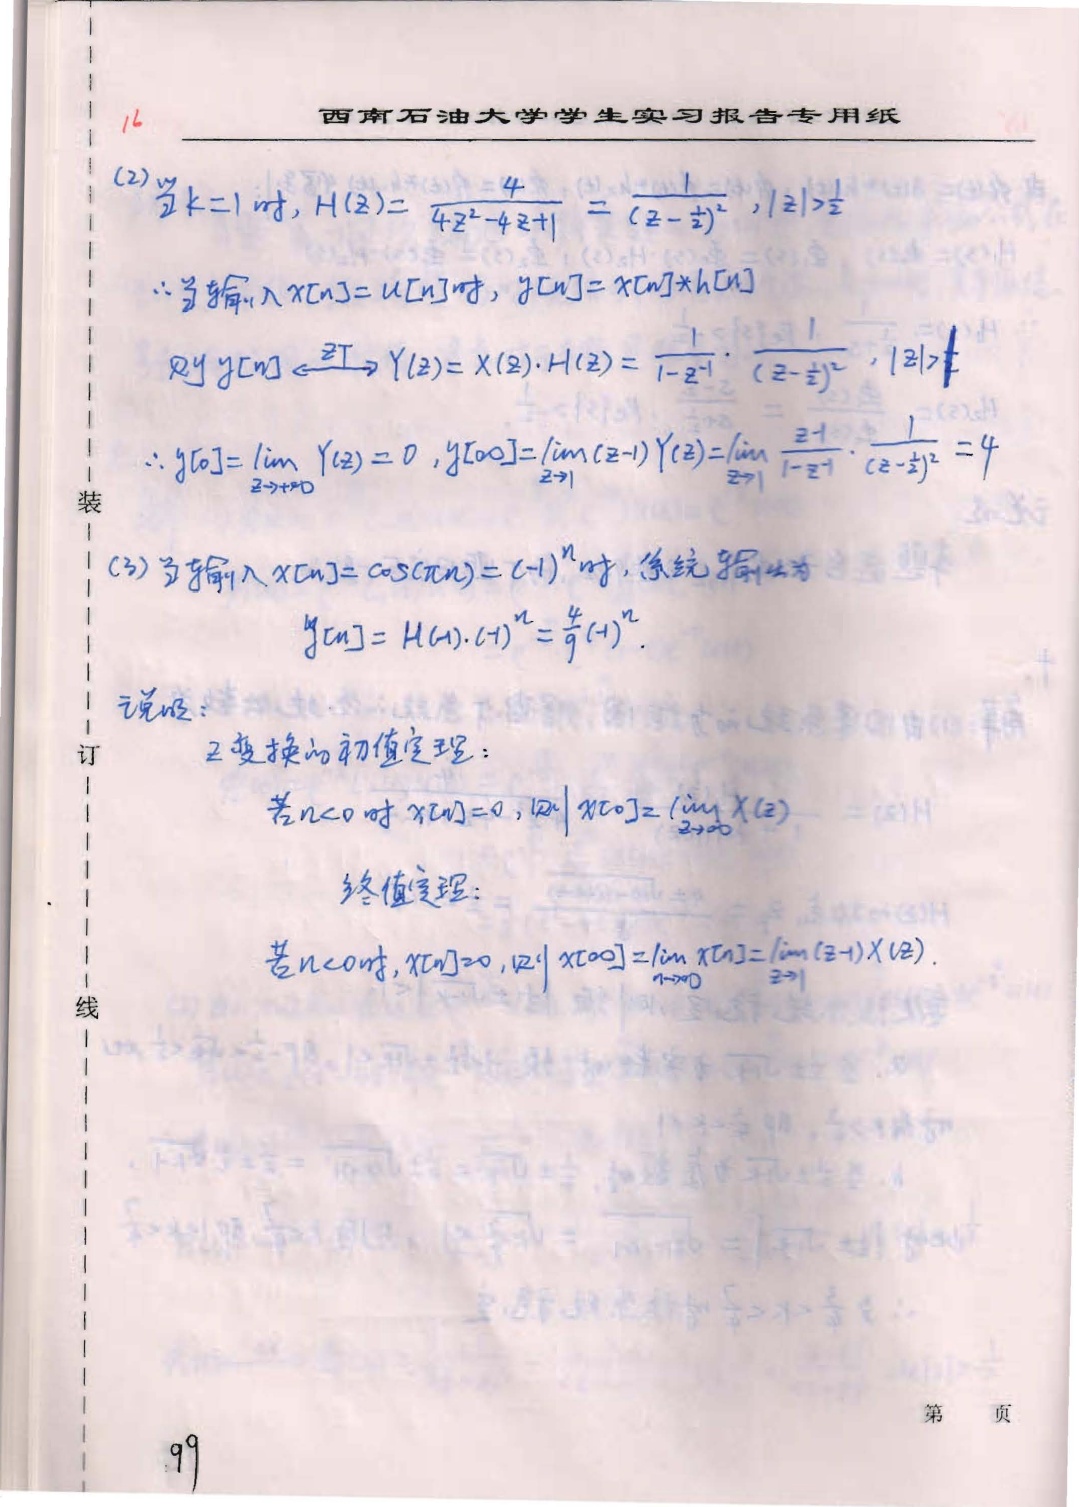 16
西南石油大学学生实习报告专用纸
(2) 当k=1时, H(z)= 4/(4z²-4z+1) = 1/(z-1/2)² , |z|>1/2
∴当输入x[n]=u[n]时, y[n]=x[n]*h[n]
则y[n] <—ZT—> Y(z)=X(z)·H(z)= 1/(1-z⁻¹) · 1/(z-1/2)² , |z|>1
∴y[0]=lim z→+∞ Y(z)=0 , y[∞]=lim z→1 (z-1)Y(z)=lim z→1 (z-1)/(1-z⁻¹) · 1/(z-1/2)² =4
(3) 当输入x[n]=cos(πn)=(-1)ⁿ时, 系统输出为
y[n]=H(-1)·(-1)ⁿ=4/9(-1)ⁿ.
说明:
Z变换的初值定理:
若n<0时x[n]=0, 则 x[0]=lim z→∞ X(z)
终值定理:
若n<0时, x[n]=0, 则 x[∞]=lim n→∞ x[n]=lim z→1 (z-1)X(z).
装
订
线
第 页
99